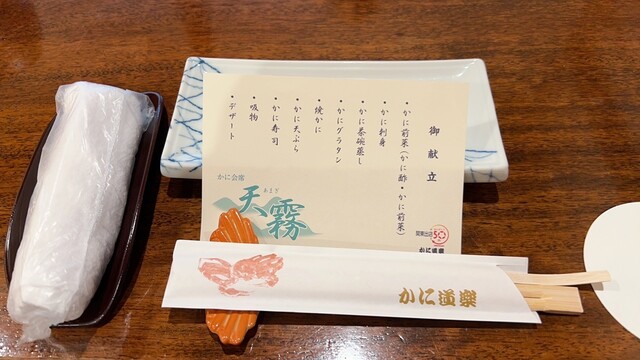 御献立
・かに前菜(かに酢・かに前菜)
・かに刺身
・かに茶碗蒸し
・かにグラタン
・焼かに
・かに天ぷら
・かに寿司
・吸物
・デザート
かに会席
あまぎり
天霧
関東出店
50
かに道楽
かに道樂